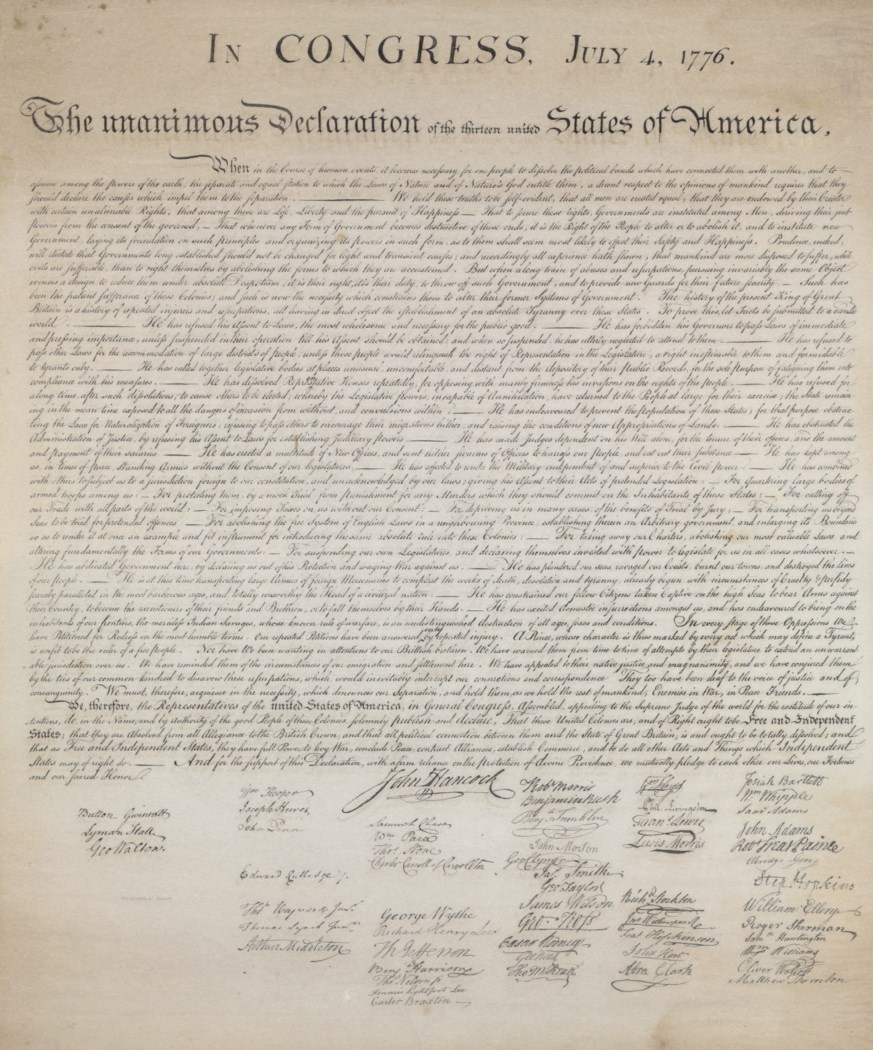 IN CONGRESS, JULY 4, 1776.
The unanimous Declaration of the thirteen united States of America,
When in the Course of human events, it becomes necessary for one people to dissolve the political bands which have connected them with another, and to
assume among the powers of the earth, the separate and equal station to which the Laws of Nature and of Nature's God entitle them, a decent respect to the opinions of mankind requires that they
should declare the causes which impel them to the separation. — We hold these truths to be self-evident, that all men are created equal, that they are endowed by their Creator
with certain unalienable Rights, that among these are Life, Liberty and the pursuit of Happiness — That to secure these rights, Governments are instituted among Men, deriving their just
powers from the consent of the governed, — That whenever any Form of Government becomes destructive of these ends, it is the Right of the People to alter or to abolish it, and to institute new
Government, laying its foundation on such principles and organizing its powers in such form, as to them shall seem most likely to effect their Safety and Happiness. Prudence, indeed,
will dictate that Governments long established should not be changed for light and transient causes; and accordingly all experience hath shewn, that mankind are more disposed to suffer, while
evils are sufferable, than to right themselves by abolishing the forms to which they are accustomed. But when a long train of abuses and usurpations, pursuing invariably the same Object
evinces a design to reduce them under absolute Despotism, it is their right, it is their duty, to throw off such Government, and to provide new Guards for their future security — Such has
been the patient sufferance of these Colonies; and such is now the necessity which constrains them to alter their former Systems of Government. The history of the present King of Great
Britain is a history of repeated injuries and usurpations, all having in direct object the establishment of an absolute Tyranny over these States. To prove this, let Facts be submitted to a candid
world. — He has refused his Assent to Laws, the most wholesome and necessary for the public good. — He has forbidden his Governors to pass Laws of immediate
and pressing importance, unless suspended in their operation till his Assent should be obtained; and when so suspended, he has utterly neglected to attend to them. — He has refused to
pass other Laws for the accommodation of large districts of people, unless those people would relinquish the right of Representation in the Legislature, a right inestimable to them and formidable
to tyrants only. — He has called together legislative bodies at places unusual, uncomfortable, and distant from the depository of their Public Records, for the sole purpose of fatiguing them into
compliance with his measures. — He has dissolved Representative Houses repeatedly, for opposing with manly firmness his invasions on the rights of the people. — He has refused for
a long time, after such dissolutions, to cause others to be elected; whereby the Legislative powers, incapable of Annihilation, have returned to the People at large for their exercise; the State remain-
ing in the mean time exposed to all the dangers of invasion from without, and convulsions within. — He has endeavoured to prevent the population of these States; for that purpose obstruc-
ting the Laws for Naturalization of Foreigners; refusing to pass others to encourage their migrations hither, and raising the conditions of new Appropriations of Lands. — He has obstructed the
Administration of Justice, by refusing his Assent to Laws for establishing Judiciary powers. — He has made Judges dependent on his Will alone, for the tenure of their offices, and the amount
and payment of their salaries. — He has erected a multitude of New Offices, and sent hither swarms of Officers to harrass our people, and eat out their substance. — He has kept among
us, in times of peace, Standing Armies without the Consent of our legislatures. — He has affected to render the Military independent of and superior to the Civil power. — He has combined
with others to subject us to a jurisdiction foreign to our constitution, and unacknowledged by our laws; giving his Assent to their Acts of pretended Legislation: — For Quartering large bodies of
armed troops among us: — For protecting them, by a mock Trial, from punishment for any Murders which they should commit on the Inhabitants of these States: — For cutting off
our Trade with all parts of the world: — For imposing Taxes on us without our Consent: — For depriving us in many cases, of the benefits of Trial by Jury: — For transporting us beyond
Seas to be tried for pretended offences — For abolishing the free System of English Laws in a neighbouring Province, establishing therein an Arbitrary government, and enlarging its Boundaries
so as to render it at once an example and fit instrument for introducing the same absolute rule into these Colonies: — For taking away our Charters, abolishing our most valuable Laws, and
altering fundamentally the Forms of our Governments: — For suspending our own Legislatures, and declaring themselves invested with power to legislate for us in all cases whatsoever. —
He has abdicated Government here, by declaring us out of his Protection and waging War against us. — He has plundered our seas, ravaged our Coasts, burnt our towns, and destroyed the lives
of our people. — He is at this time transporting large Armies of foreign Mercenaries to compleat the works of death, desolation and tyranny, already begun with circumstances of Cruelty & perfidy
scarcely paralleled in the most barbarous ages, and totally unworthy the Head of a civilized nation. — He has constrained our fellow Citizens taken Captive on the high Seas to bear Arms against
their Country, to become the executioners of their friends and Brethren, or to fall themselves by their Hands. — He has excited domestic insurrections amongst us, and has endeavoured to bring on the
inhabitants of our frontiers, the merciless Indian Savages, whose known rule of warfare, is an undistinguished destruction of all ages, sexes and conditions. In every stage of these Oppressions We
have Petitioned for Redress in the most humble terms: Our repeated Petitions have been answered only by repeated injury. A Prince, whose character is thus marked by every act which may define a Tyrant,
is unfit to be the ruler of a free people. Nor have We been wanting in attentions to our Brittish brethren. We have warned them from time to time of attempts by their legislature to extend an unwarrant-
able jurisdiction over us. We have reminded them of the circumstances of our emigration and settlement here. We have appealed to their native justice and magnanimity, and we have conjured them
by the ties of our common kindred to disavow these usurpations, which, would inevitably interrupt our connections and correspondence. They too have been deaf to the voice of justice and of
consanguinity. We must, therefore, acquiesce in the necessity, which denounces our Separation, and hold them, as we hold the rest of mankind, Enemies in War, in Peace Friends. —
We, therefore, the Representatives of the united States of America, in General Congress, Assembled, appealing to the Supreme Judge of the world for the rectitude of our in-
tentions, do, in the Name, and by Authority of the good People of these Colonies, solemnly publish and declare, That these United Colonies are, and of Right ought to be Free and Independent
States; that they are Absolved from all Allegiance to the British Crown, and that all political connection between them and the State of Great Britain, is and ought to be totally dissolved; and
that as Free and Independent States, they have full Power to levy War, conclude Peace, contract Alliances, establish Commerce, and to do all other Acts and Things which Independent
States may of right do. — And for the support of this Declaration, with a firm reliance on the Protection of divine Providence, we mutually pledge to each other our Lives, our Fortunes
and our sacred Honor.
John Hancock
Button Gwinnett
Lyman Hall
Geo Walton.
Wm Hooper
Joseph Hewes,
John Penn
Edward Rutledge /.
Thos Heyward Junr.
Thomas Lynch Junr.
Arthur Middleton
Samuel Chase
Wm Paca
Thos. Stone
Charles Carroll of Carrollton
George Wythe
Richard Henry Lee
Th Jefferson
Benja Harrison
Thos Nelson jr.
Francis Lightfoot Lee
Carter Braxton
Robt Morris
Benjamin Rush
Benja. Franklin
John Morton
Geo Clymer
Jas. Smith
Geo. Taylor
James Wilson
Geo. Ross
Caesar Rodney
Geo Read
Tho M:Kean
Wm Floyd
Phil. Livingston
Frans. Lewis
Lewis Morris
Richd. Stockton
Jno Witherspoon
Fras. Hopkinson
John Hart
Abra Clark
Josiah Bartlett
Wm Whipple
Saml Adams
John Adams
Robt Treat Paine
Elbridge Gerry
Step. Hopkins
William Ellery
Roger Sherman
Saml Huntington
Wm Williams
Oliver Wolcott
Matthew Thornton